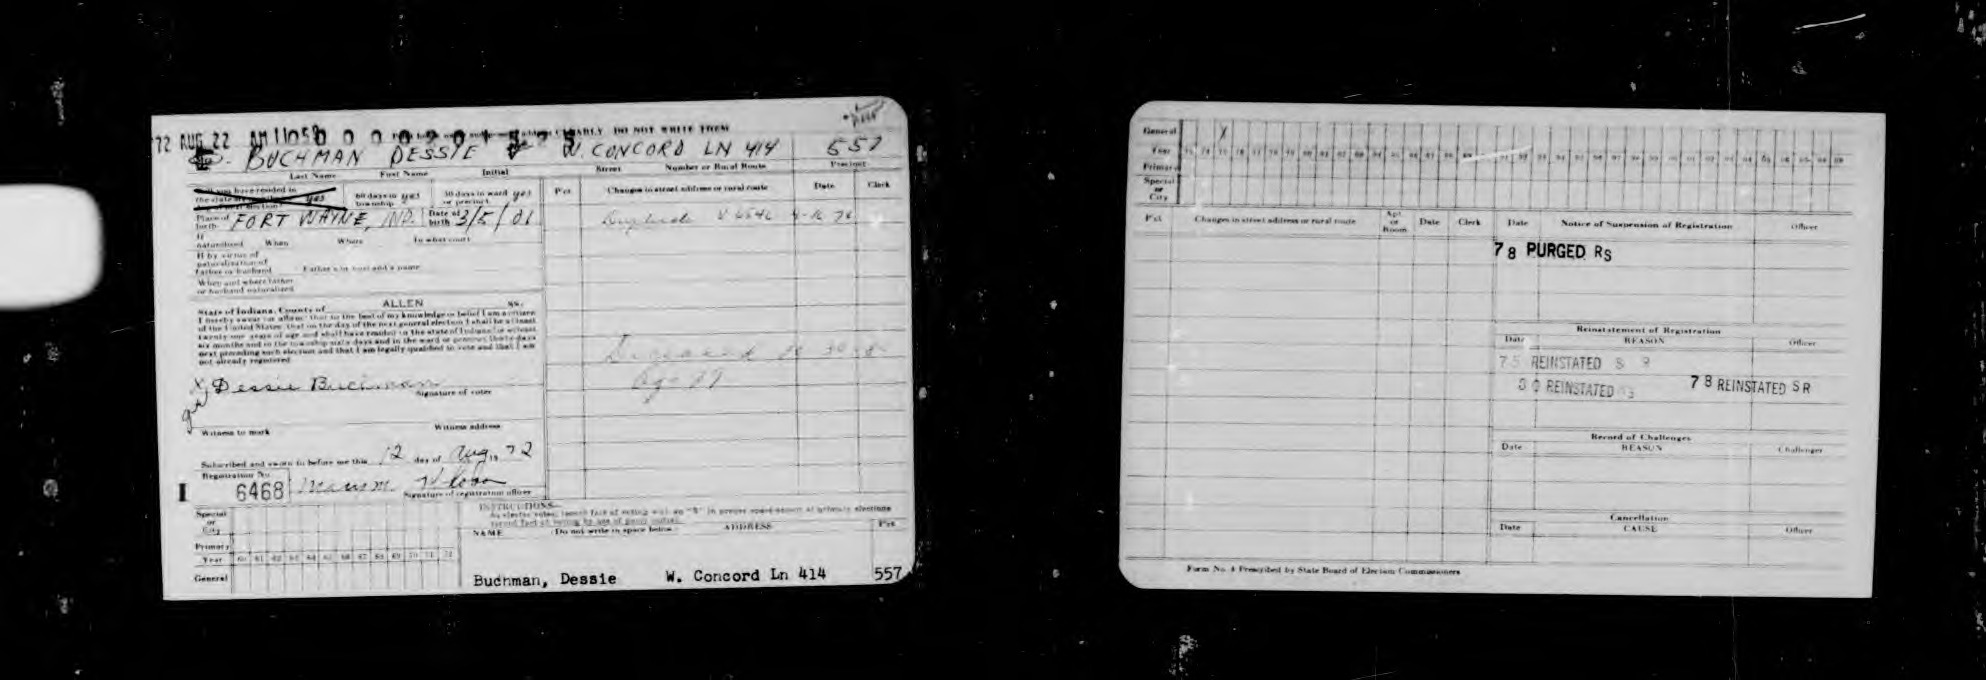 72 AUG 22 AM 11 05
CLEARLY DO NOT WRITE FROM
BUCHMAN DESSIE W. CONCORD LN 414 557
Last Name First Name Initial Street Number or Rural Route Precinct
Will you have resided in
the state yes 60 days in township yes 30 days in ward or precinct yes
Pct. Changes in street address or rural route Date Clerk
Place of birth FORT WAYNE, IND. Date of birth 3/5/01
Duplicate
If naturalized When Where In what court
If by virtue of
naturalization of
father or husband Father's or husband's name
When and where father
or husband naturalized
State of Indiana, County of ALLEN ss.
I hereby swear (or affirm) that to the best of my knowledge or belief I am a citizen
of the United States, that on the day of the next general election I shall be at least
twenty-one years of age and shall have resided in the state of Indiana for at least
six months and in the township sixty days and in the ward or precinct thirty days
next preceding such election and that I am legally qualified to vote and that I am
not already registered
Deceased
X Dessie Buchman
Signature of voter
Witness to mark Witness address
Subscribed and sworn to before me this 12 day of Aug 19 72
Registration No.
I 6468
Signature of registration officer
INSTRUCTIONS
Special
or
City
Primary
Year 60 61 62 63 64 65 66 67 68 69 70 71 72
General
NAME (Do not write in space below) ADDRESS Pct.
Buchman, Dessie W. Concord Ln 414 557
General X
Year
Primary
Special
or
City
Pct. Changes in street address or rural route Apt. or Room Date Clerk Date Notice of Suspension of Registration Officer
78 PURGED RS
Reinstatement of Registration
Date REASON Officer
75 REINSTATED S R
80 REINSTATED 78 REINSTATED SR
Record of Challenges
Date REASON Challenger
Cancellation
Date CAUSE Officer
Form No. 4 Prescribed by State Board of Election Commissioners